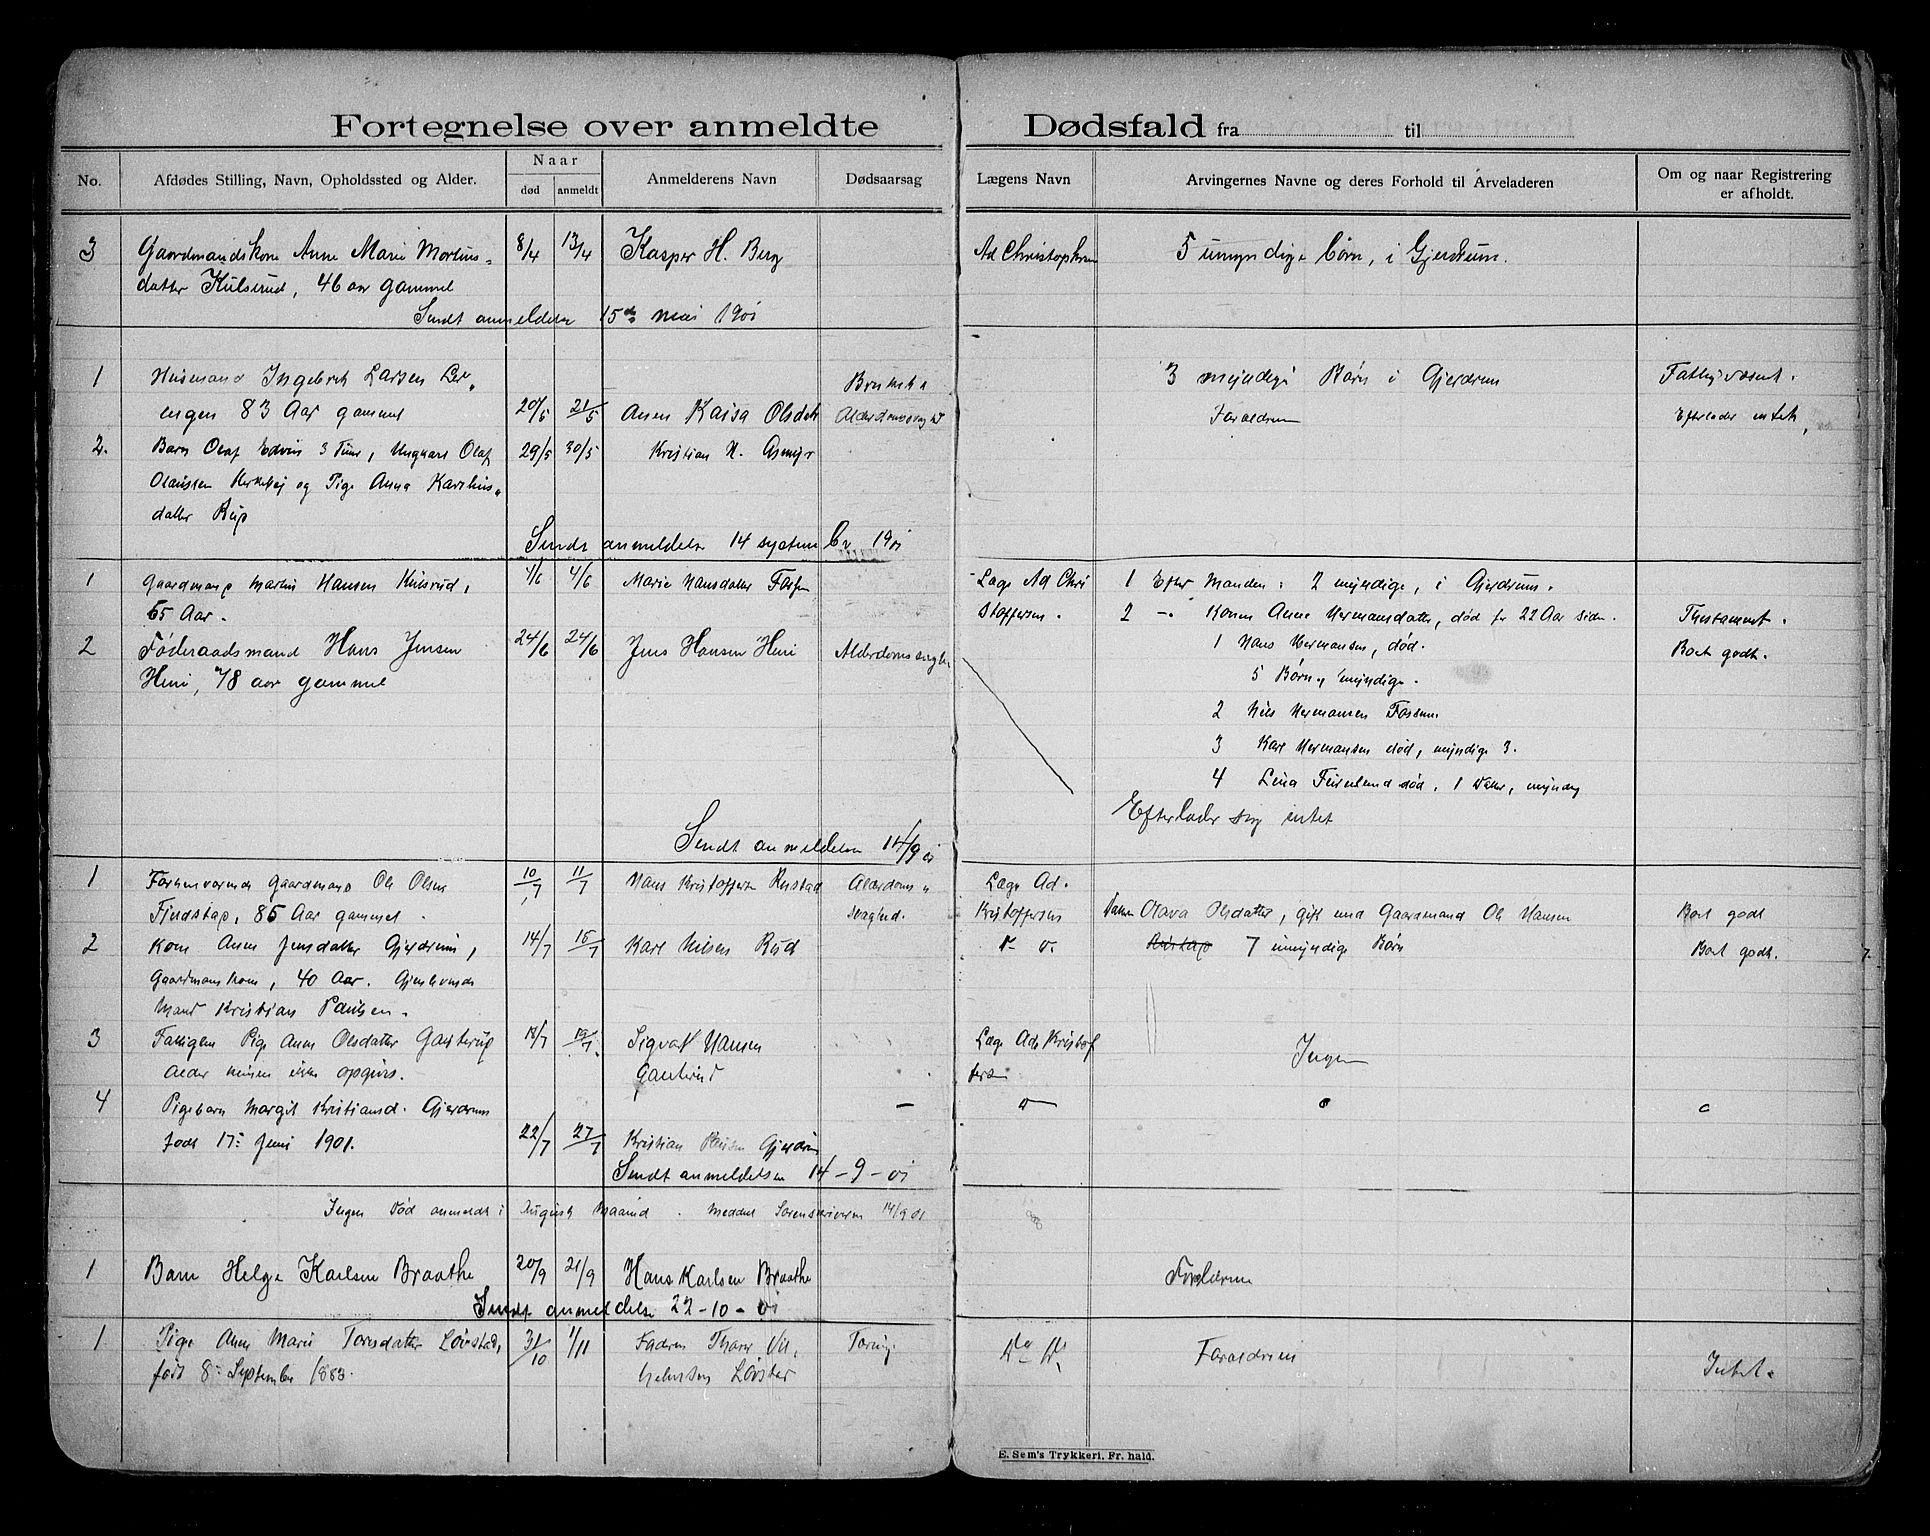 Fortegnelse over anmeldte Dødsfald fra til
No.
Afdødes Stilling, Navn, Opholdssted og Alder.
Naar
død anmeldt
Anmelderens Navn
Dødsaarsag
Lægens Navn
Arvingernes Navne og deres Forhold til Arveladeren
Om og naar Registrering
er afholdt.
3 Gaardmandskone Anne Marie Mortins- 8/4 13/4 Kasper H. Berg Ad Christophersen 5 umyndige børn, i Gjerdrum.
datter Kulsrud, 46 aar gammel
Sendt anmeldelse 15de mai 1901
1 Husmand Ingebrit Larsen 3 myndige Børn i Gjerdrum
engen 83 Aar gammel 20/5 21/5 Anen Kaisa Olsdatt Forældrene Efterlader intet
2. Barn Olaf Edvin 3 Timer, Ungkarl Olaf 29/5 30/5 Kristian N. Asmyr
Olaussen og Pige Anna Karelius-
datter
Sendt anmeldelse 14 september 1901
1 Gaardmand Martin Hansen Kulsrud, 4/6 4/6 Marie Hansdatter Læge Ad Chri 1 Efter Manden: 2 myndige, i Gjerdrum.
65 Aar. Stoffersen. 2 -"- Konen Anne Hermansdatter, død for 22 Aar siden. Thestament.
2 Føderaadsmand Hans Jensen 24/6 24/6 Jens Hansen Heni Alderdomssvaghed 1 Hans Hermansen, død. Boet godt.
Heni, 78 aar gammel 5 Børn, myndige.
2 Nils Hermansen Fossum
3 Karl Hermansen død, myndige 3.
4 Lina død, 1 Datter, myndig
Efterlader sig intet
Sendt anmeldelse 14/9 01
1 Forhenværende Gaardmand Ole Olsen 10/7 11/7 Hans Kristoffersen Rustad Alderdoms- Læge Ad.
Fjeldstad, 85 Aar gammel. svaghed. Kristoffersen Datter Olava Olsdatter, gift med Gaardmand Ole Hansen Boet godt
2 Kone Anne Jensdatter Gjerdrum, 14/7 15/7 Karl Nilsen Rud Rustad 7 umyndige Børn Boet godt.
Gaardmanskone, 40 Aar. Gjenlevende
Mand Kristian Paulsen.
3 Fattiglem Pige Anne Olsdatter Ganterud 18/7 19/7 Sigvart Hansen Læge Ad Kristof
Alder kunde ikke opgives. Ganterud fersen Ingen
4 Pigebarn Margit Kristiansd. Gjerdrum –
født 17: Juni 1901. 22/7 27/7 Kristian Paulsen Gjerdrum
Sendt anmeldelsen 14-9-01
Ingen Død anmeldt i August Maaned. Meddelt Sorenskriveren 14/9 01
1 Barn Helge Karlsen Braathe 20/9 21/9 Hans Karlsen Braathe Forældrene
Sendt anmeldelse 22-10-01
1 Pige Anne Marie Torsdatter Løvstad, 31/10 1/11 Faderen Thorer Vil- Tæring Forældrene
født 8: September 1883. helmsen Løvstad Intet.
E. Sem's Trykkeri, Fr. hald.